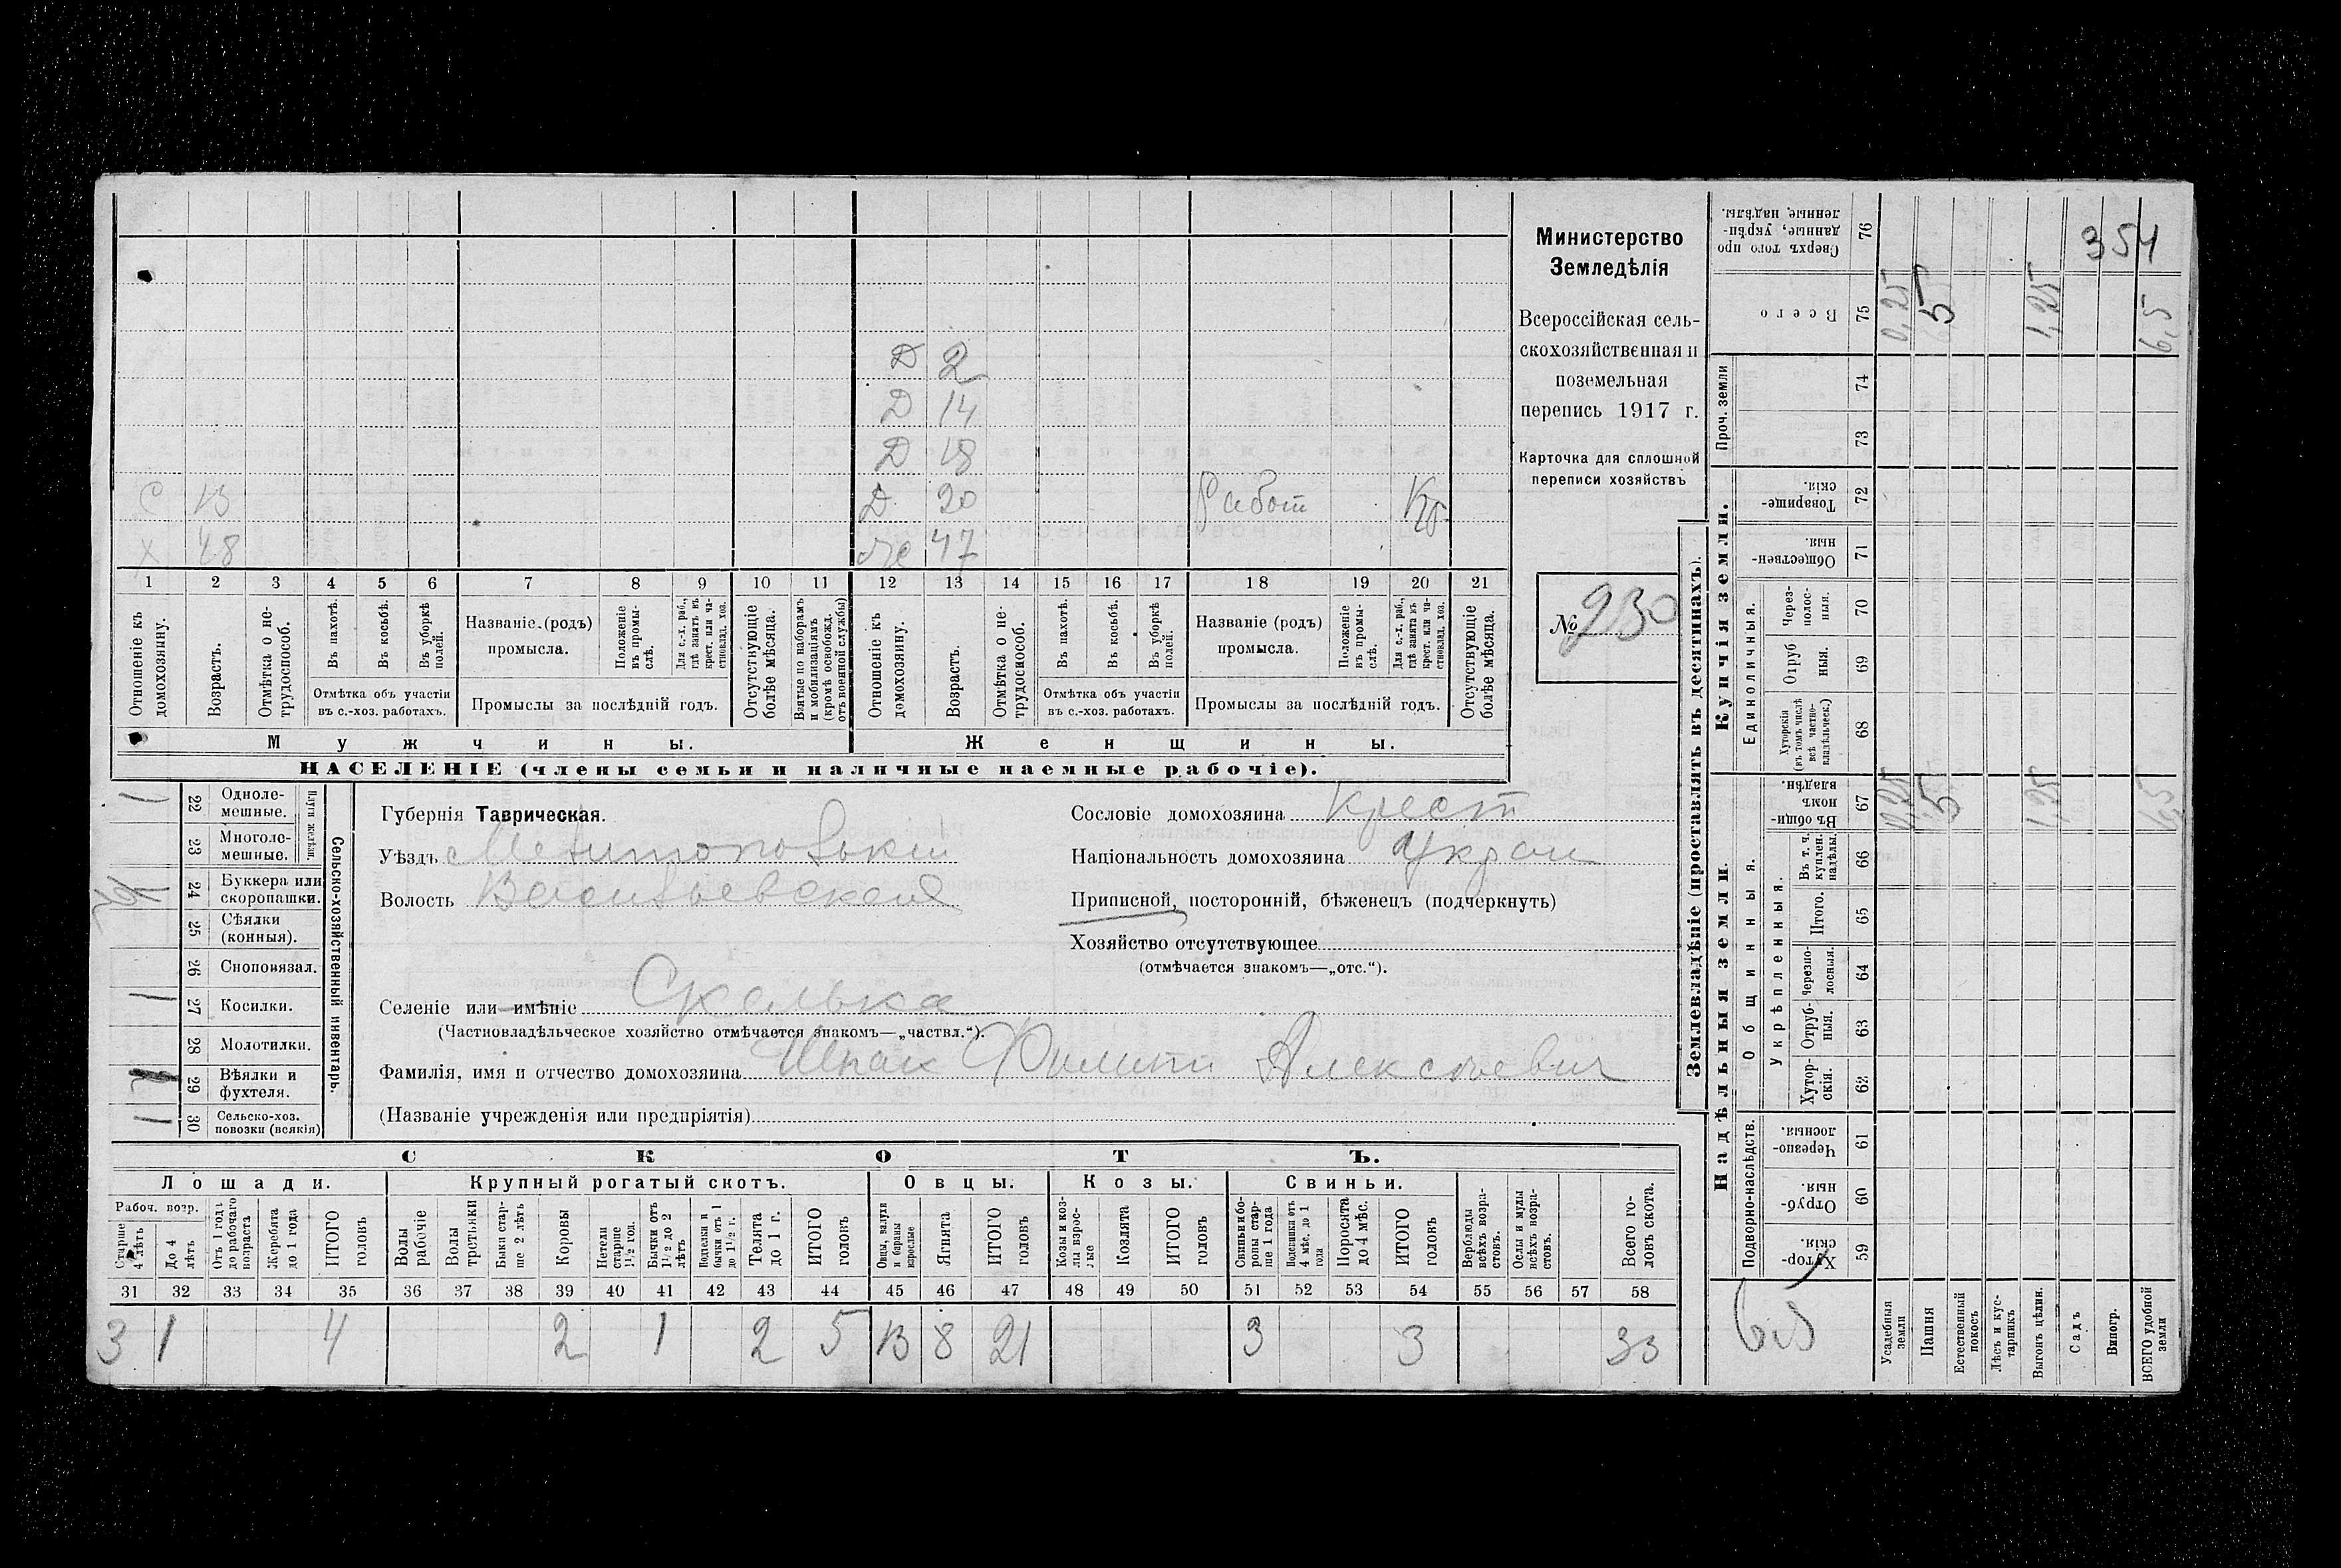 Министерство
Земледѣлія
Всероссійская сель-
скохозяйственная и
поземельная
перепись 1917 г.
Карточка для сплошной
переписи хозяйствъ
№ 230
354
Д 2
Д 14
Д 18
С 13 Д 20 Работ Кр
Х 48 Же 47
1 2 3 4 5 6 7 8 9 10 11 12 13 14 15 16 17 18 19 20 21
Отношеніе къ домохозяину.
Возрастъ.
Отмѣтка о не-трудоспособ.
Въ пахотѣ.
Въ косьбѣ.
Въ уборкѣ полей.
Отмѣтка объ участіи
въ с.-хоз. работахъ.
Названіе (родъ)
промысла.
Положеніе въ промы-слѣ.
Для с.-х. раб., гдѣ занятъ въ крест. или ча-стновлад. хоз.
Промыслы за послѣдній годъ.
Отсутствующіе болѣе мѣсяца.
Взятые по наборамъ и мобилизаціямъ (кромѣ освобожд. отъ военной службы)
Отношеніе къ домохозяину.
Возрастъ.
Отмѣтка о не-трудоспособ.
Въ пахотѣ.
Въ косьбѣ.
Въ уборкѣ полей.
Отмѣтка объ участіи
въ с.-хоз. работахъ.
Названіе (родъ)
промысла.
Положеніе въ промы-слѣ.
Для с.-х. раб., гдѣ занята въ крест. или ча-стновлад. хоз.
Промыслы за послѣдній годъ.
Отсутствующіе болѣе мѣсяца.
Мужчины. Женщины.
НАСЕЛЕНІЕ (члены семьи и наличные наемные рабочіе).
Сельско-хозяйственный инвентарь.
Плуги желѣзн.
1 22 Одноле-мешные.
23 Многоле-мешные.
24 Буккера или скоропашки.
25 Сѣялки (конныя).
26 Сноповязал.
1 27 Косилки.
28 Молотилки.
29 Вѣялки и фухтеля.
1 30 Сельско-хоз. повозки (всякія)
Губернія Таврическая.
Уѣздъ Мелитопольскій
Волость Васильевская
Селеніе или имѣніе Скелька
(Частновладѣльческое хозяйство отмѣчается знакомъ—„частвл.“).
Фамилія, имя и отчество домохозяина Шпак Филипп Алексѣевич
(Названіе учрежденія или предпріятія)
Сословіе домохозяина Крест
Національность домохозяина Украи
Приписной, посторонній, бѣженецъ (подчеркнуть)
Хозяйство отсутствующее
(отмѣчается знакомъ—„отс.“).
СКОТЪ.
Лошади. Крупный рогатый скотъ. Овцы. Козы. Свиньи.
Рабоч. возр.
Старше 4 лѣтъ
До 4 лѣтъ
Отъ 1 года до рабочаго возраста
Жеребята до 1 года
ИТОГО головъ
Волы рабочіе
Волы третьяки
Быки стар-ше 2 лѣтъ
Коровы
Нетели старше 1½ год.
Бычки отъ 1½ до 2 лѣтъ
Подтелки и бычки отъ 1 до 1½ г.
Телята до 1 г.
ИТОГО головъ
Овцы, валухи и бараны взрослые
Ягнята
ИТОГО головъ
Козы и коз-лы взрос-лые
Козлята
ИТОГО головъ
Свиньи и бо-ровы стар-ше 1 года
Подсвинки отъ 4 мѣс. до 1 года
Поросята до 4 мѣс.
ИТОГО головъ
Верблюды всѣхъ возра-стовъ.
Ослы и мулы всѣхъ возра-стовъ.
Всего го-ловъ скота.
31 32 33 34 35 36 37 38 39 40 41 42 43 44 45 46 47 48 49 50 51 52 53 54 55 56 57 58
3 1 4 2 1 2 5 13 8 21 3 3 33
Землевладѣніе (проставлять въ десятинахъ).
Купчія земли.
Надѣльныя земли.
Сверхъ того про-данные, укрѣп-ленные, надѣлы. 76
Всего 75 0,25 5 1,25 6,5
Проч. земли 74 73
Товарище-скія. 72
Обществен-ныя. 71
Единоличныя.
Через-полос-ныя. 70
Отруб-ныя. 69
Хуторскія (въ томъ числѣ всѣ частно-владѣльческ.) 68
Общинныя.
Въ общи-номъ владѣн. 67 0,25 5 1,25 6,5
Укрѣпленныя.
Въ т. ч. куплен. надѣлы. 66
Итого. 65
Черезпо-лосныя. 64
Отруб-ныя. 63
Хутор-скія. 62
Подворно-наслѣдств.
Черезпо-лосныя. 61
Отруб-ныя. 60
Хутор-скія. 59
6,5
Усадебныя земли
Пашня
Естественный покосъ
Лѣсъ и кус-тарникъ
Выгонъ цѣлин.
Садъ
Виногр.
ВСЕГО удобной земли